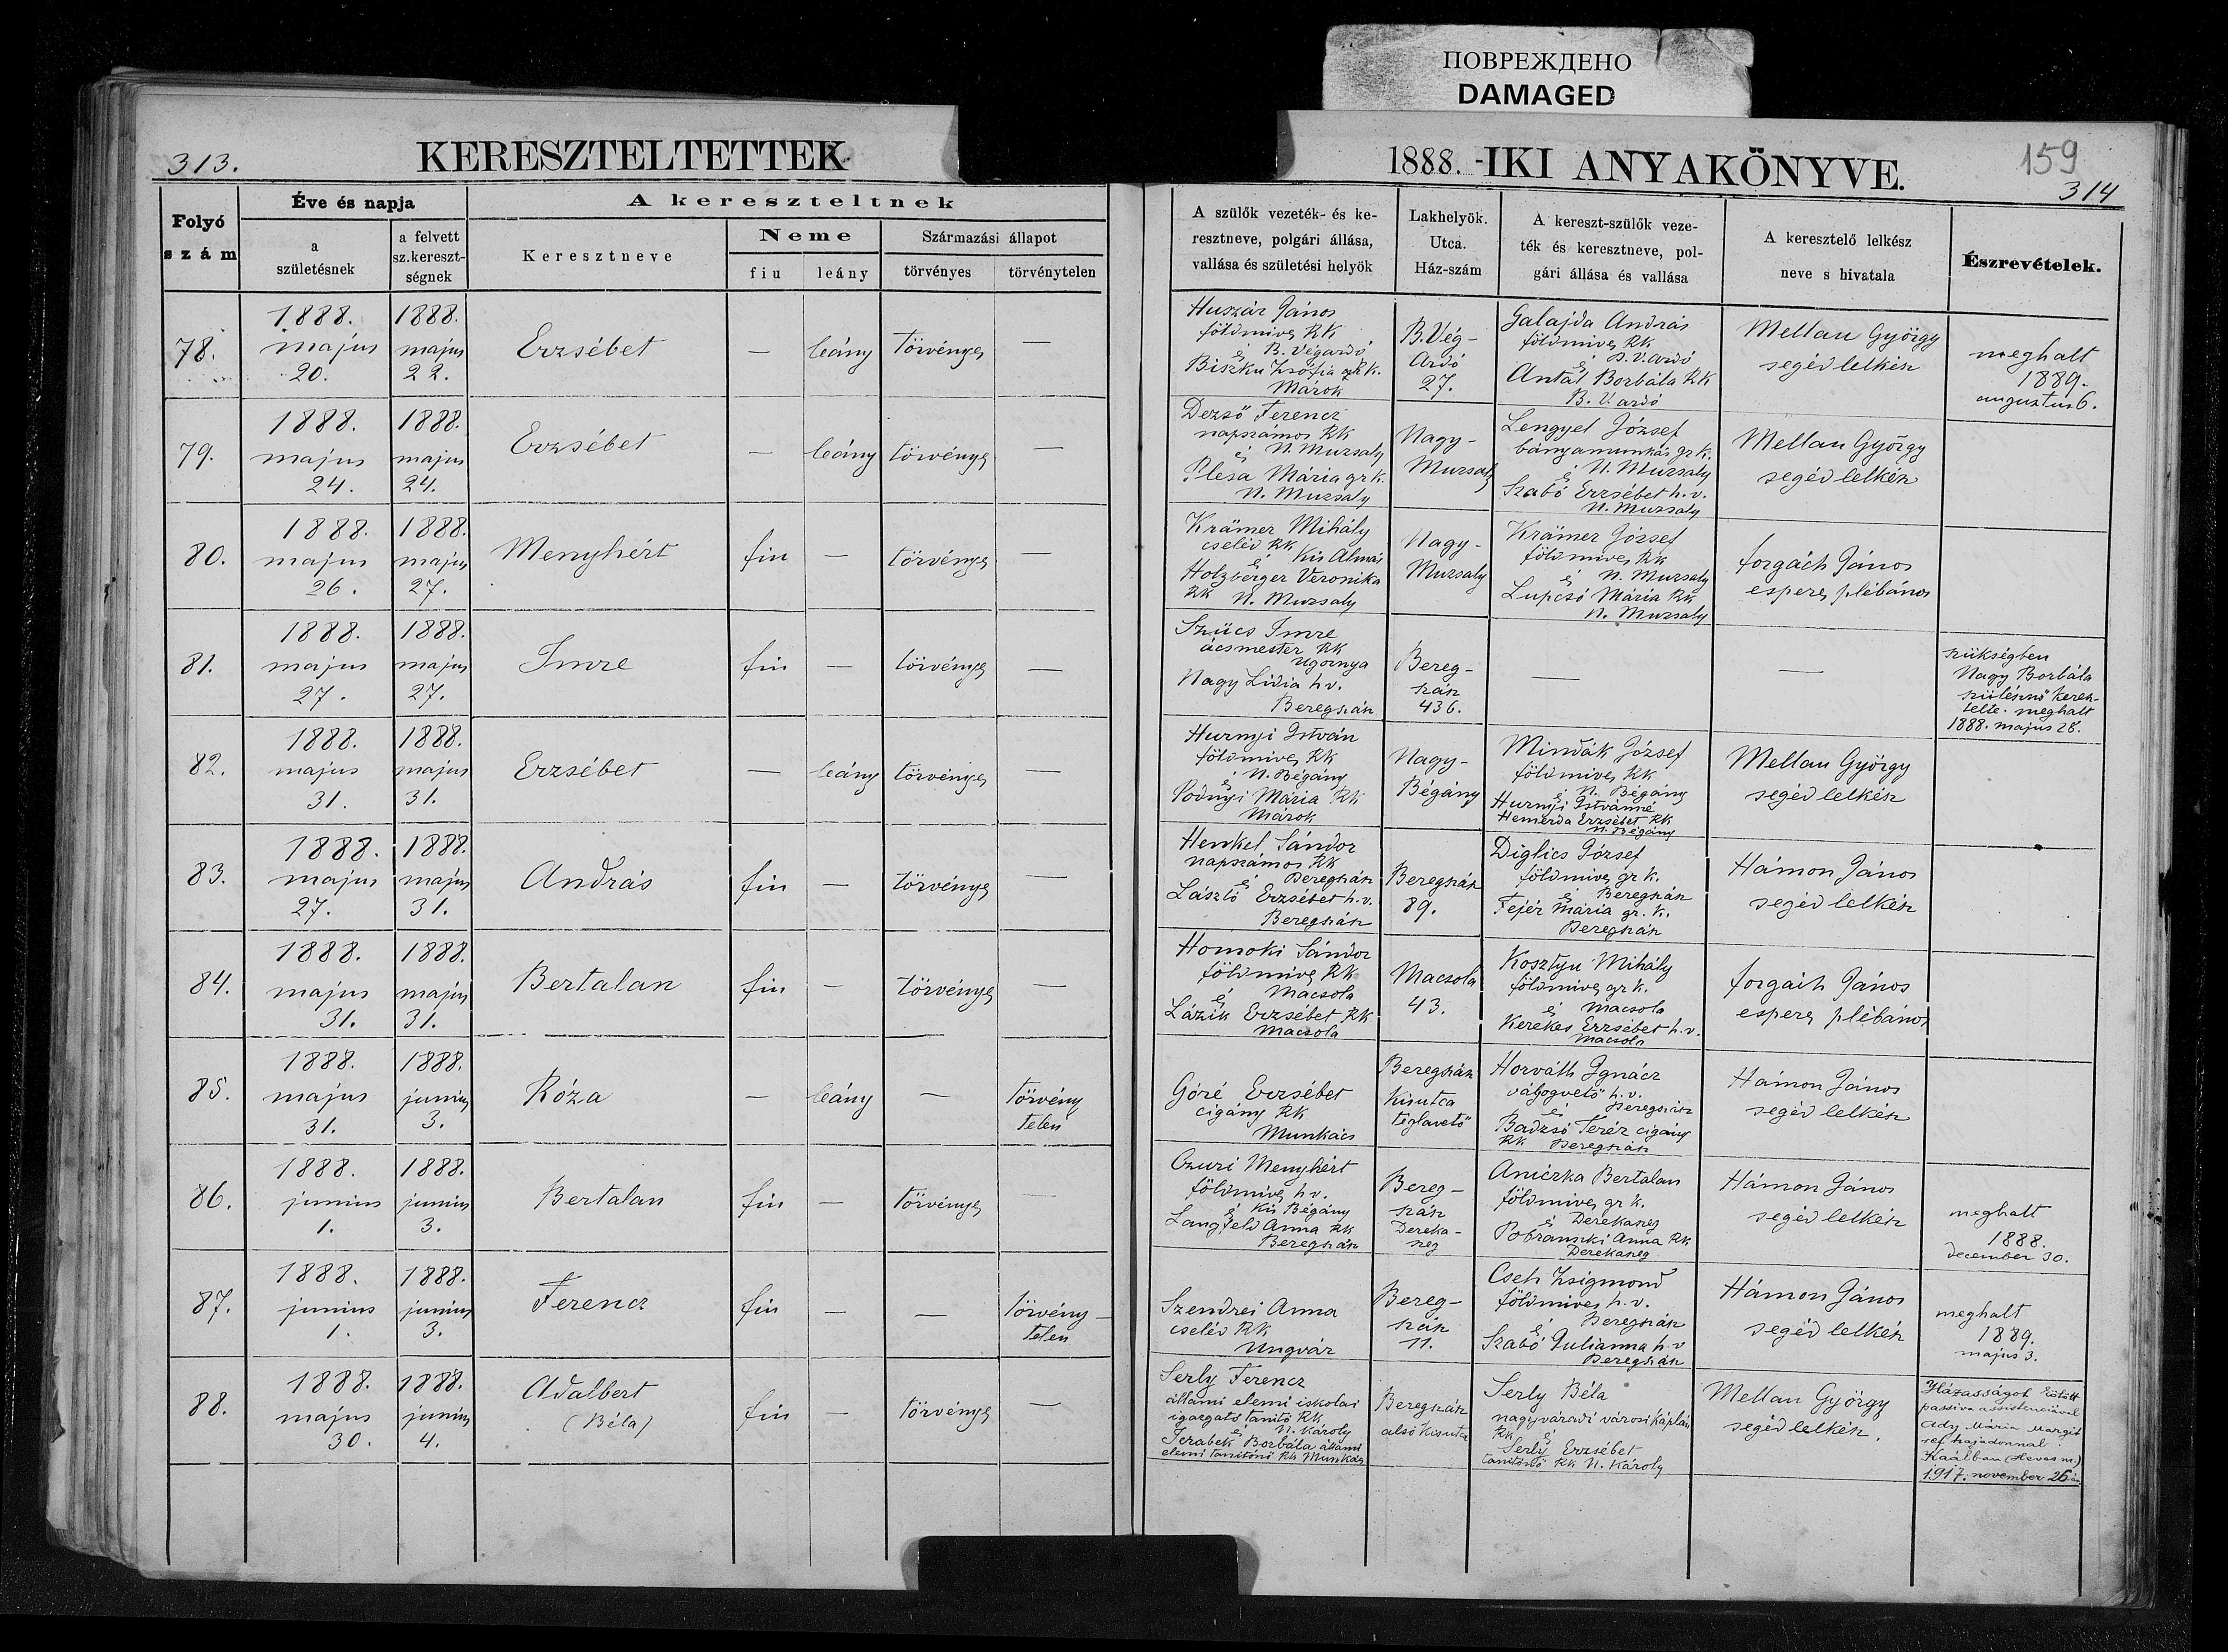 ПОВРЕЖДЕНО
DAMAGED
313.
KERESZTELTETTEK
1888. -IKI ANYAKÖNYVE.
159
314
Folyó
szám
Éve és napja
a
születésnek
a felvett
sz.kereszt-
ségnek
A kereszteltnek
Keresztneve
Neme
fiu
leány
Származási állapot
törvényes
törvénytelen
A szülők vezeték- és ke-
resztneve, polgári állása,
vallása és születési helyök
Lakhelyök.
Utca.
Ház-szám
A kereszt-szülők veze-
ték és keresztneve, pol-
gári állása és vallása
A keresztelő lelkész
neve s hivatala
Észrevételek.
78.
1888.
majus
20.
1888.
majus
22.
Erzsébet
—
leány
törvényes
Huszár János
földmives RK
és B. Végardó
Biszku Zsófia gr k.
Márok
B. Vég-
Ardó
27.
Galajda András
földmives RK
és B. V. ardó
Antal Borbála RK
B. V. ardó
Mellau György
segédlelkész
meghalt
1889.
augustus 6.
79.
1888.
majus
24.
1888.
majus
24.
Erzsébet
—
leány
törvényes
—
Dezső Ferencz
napszámos RK
és N. Muzsaly
Plesa Mária gr k.
N. Muzsaly
Nagy-
Muzsaly
Lengyel József
bányamunkás gr k.
és N. Muzsaly
Szabó Erzsébet h. v.
N. Muzsaly
Mellau György
segédlelkész
80.
1888.
majus
26.
1888.
majus
27.
Menyhért
fiu
—
törvényes
—
Krämer Mihály
cseléd RK
és Kis Almás
Holzberger Veronika
RK N. Muzsaly
Nagy-
Muzsaly
Krämer József
földmives RK
és N. Muzsaly
Lupcsó Mária RK
N. Muzsaly
forgách János
esperes plébános
81.
1888.
majus
27.
1888.
majus
27.
Imre
fiu
—
törvényes
—
Szücs Imre
ácsmester RK
Ugornya
Nagy Lidia h v.
Beregszász
Bereg-
szász
436.
—
—
szükségben
Nagy Borbála
szülésznő keresz-
telte. meghalt
1888. majus 28.
82.
1888.
majus
31.
1888.
majus
31.
Erzsébet
—
leány
törvényes
—
Hurnyi István
földmives RK
és N. Bégány
Mária RK
Márok
Nagy-
Bégány
Mindák József
földmives RK
és N. Bégány
Hurnyi Istvánné
Hemerda Erzsébet RK
N. Bégány
Mellau György
segédlelkész
83.
1888.
majus
27.
1888.
majus
31.
András
fiu
—
törvényes
—
Henkel Sándor
napszámos RK
és Beregszász
László Erzsébet h. v.
Beregszász
Beregszász
89.
Diglics József
földmives gr k.
és Beregszász
Fejér Mária gr. k.
Beregszász
Hámon János
segédlelkész
84.
1888.
majus
31.
1888.
majus
31.
Bertalan
fiu
—
törvényes
—
Homoki Sándor
földmives RK
és Macsola
Lázik Erzsébet RK
Macsola
Macsola
43.
Kosztyu Mihály
földmives gr k.
és Macsola
Kerekes Erzsébet h. v.
Macsola
forgách János
esperes plébános
85.
1888.
majus
31.
1888.
junius
3.
Róza
—
leány
—
törvény
telen
Góré Erzsébet
cigány RK
Munkács
Beregszász
Kisutca
téglavető
Horváth Ignácz
vályogvető h. v.
és Beregszász
Badzsó Teréz cigány
RK Beregszász
Hámon János
segédlelkész
86.
1888.
junius
1.
1888.
junius
3.
Bertalan
fiu
—
törvényes
—
Menyhért
földmives h v.
és Kis Bégány
Langfeld Anna RK
Beregszász
Bereg-
szász
Dereka-
szeg
Aniczka Bertalan
földmives gr k.
és Derekaszeg
Pobranszki Anna RK
Derekaszeg
Hámon János
segédlelkész
meghalt
1888.
december 30.
87.
1888.
junius
1.
1888.
junius
3.
Ferencz
fiu
—
—
törvény-
telen
Szendrei Anna
cseléd RK
Ungvár
Bereg-
szász
11.
Cseh Zsigmond
földmives h. v.
és Beregszász
Szabó Julianna h. v
Beregszász
Hámon János
segédlelkész
meghalt
1889.
majus 3.
88.
1888.
majus
30.
1888.
junius
4.
Adalbert
(Béla)
fiu
—
törvényes
—
Serly Ferencz
állami elemi iskolai
igazgató tanító RK
és N. Károly
Jerabek Borbála állami
elemi tanítónő RK Munkács
Beregszász
alsó Kisutca
Serly Béla
nagyváradi városi káplán
RK és
Serly Erzsébet
tanítónő RK N. Károly
Mellau György
segédlelkész.
Házasságot kötött
passiva assistenciával
Ady Mária Margit
ref hajadonnal
Kaálban (Heves m.)
1917. november 26 án